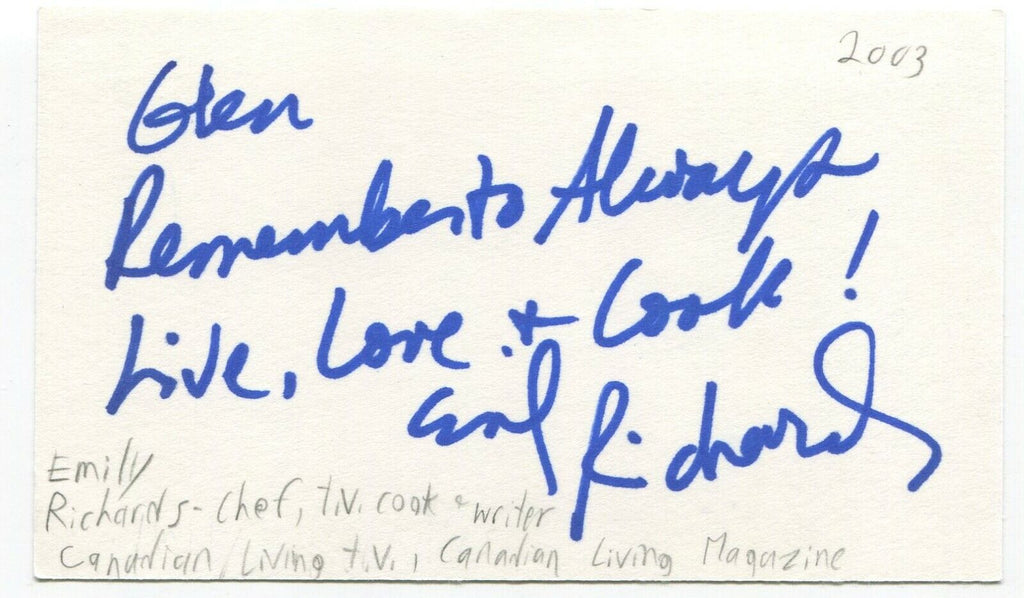 2003
Glen
Remember to Always
Live, Love & Cook!
Emily Richards
Emily
Richards - Chef, t.v. cook & writer
Canadian Living t.v., Canadian Living Magazine